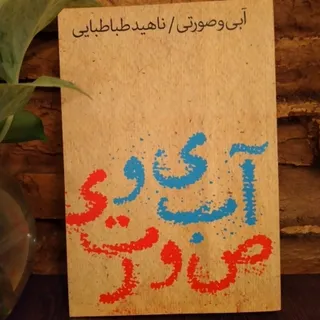 آبی و صورتی / ناهید طباطبایی
آبی و
صورتی